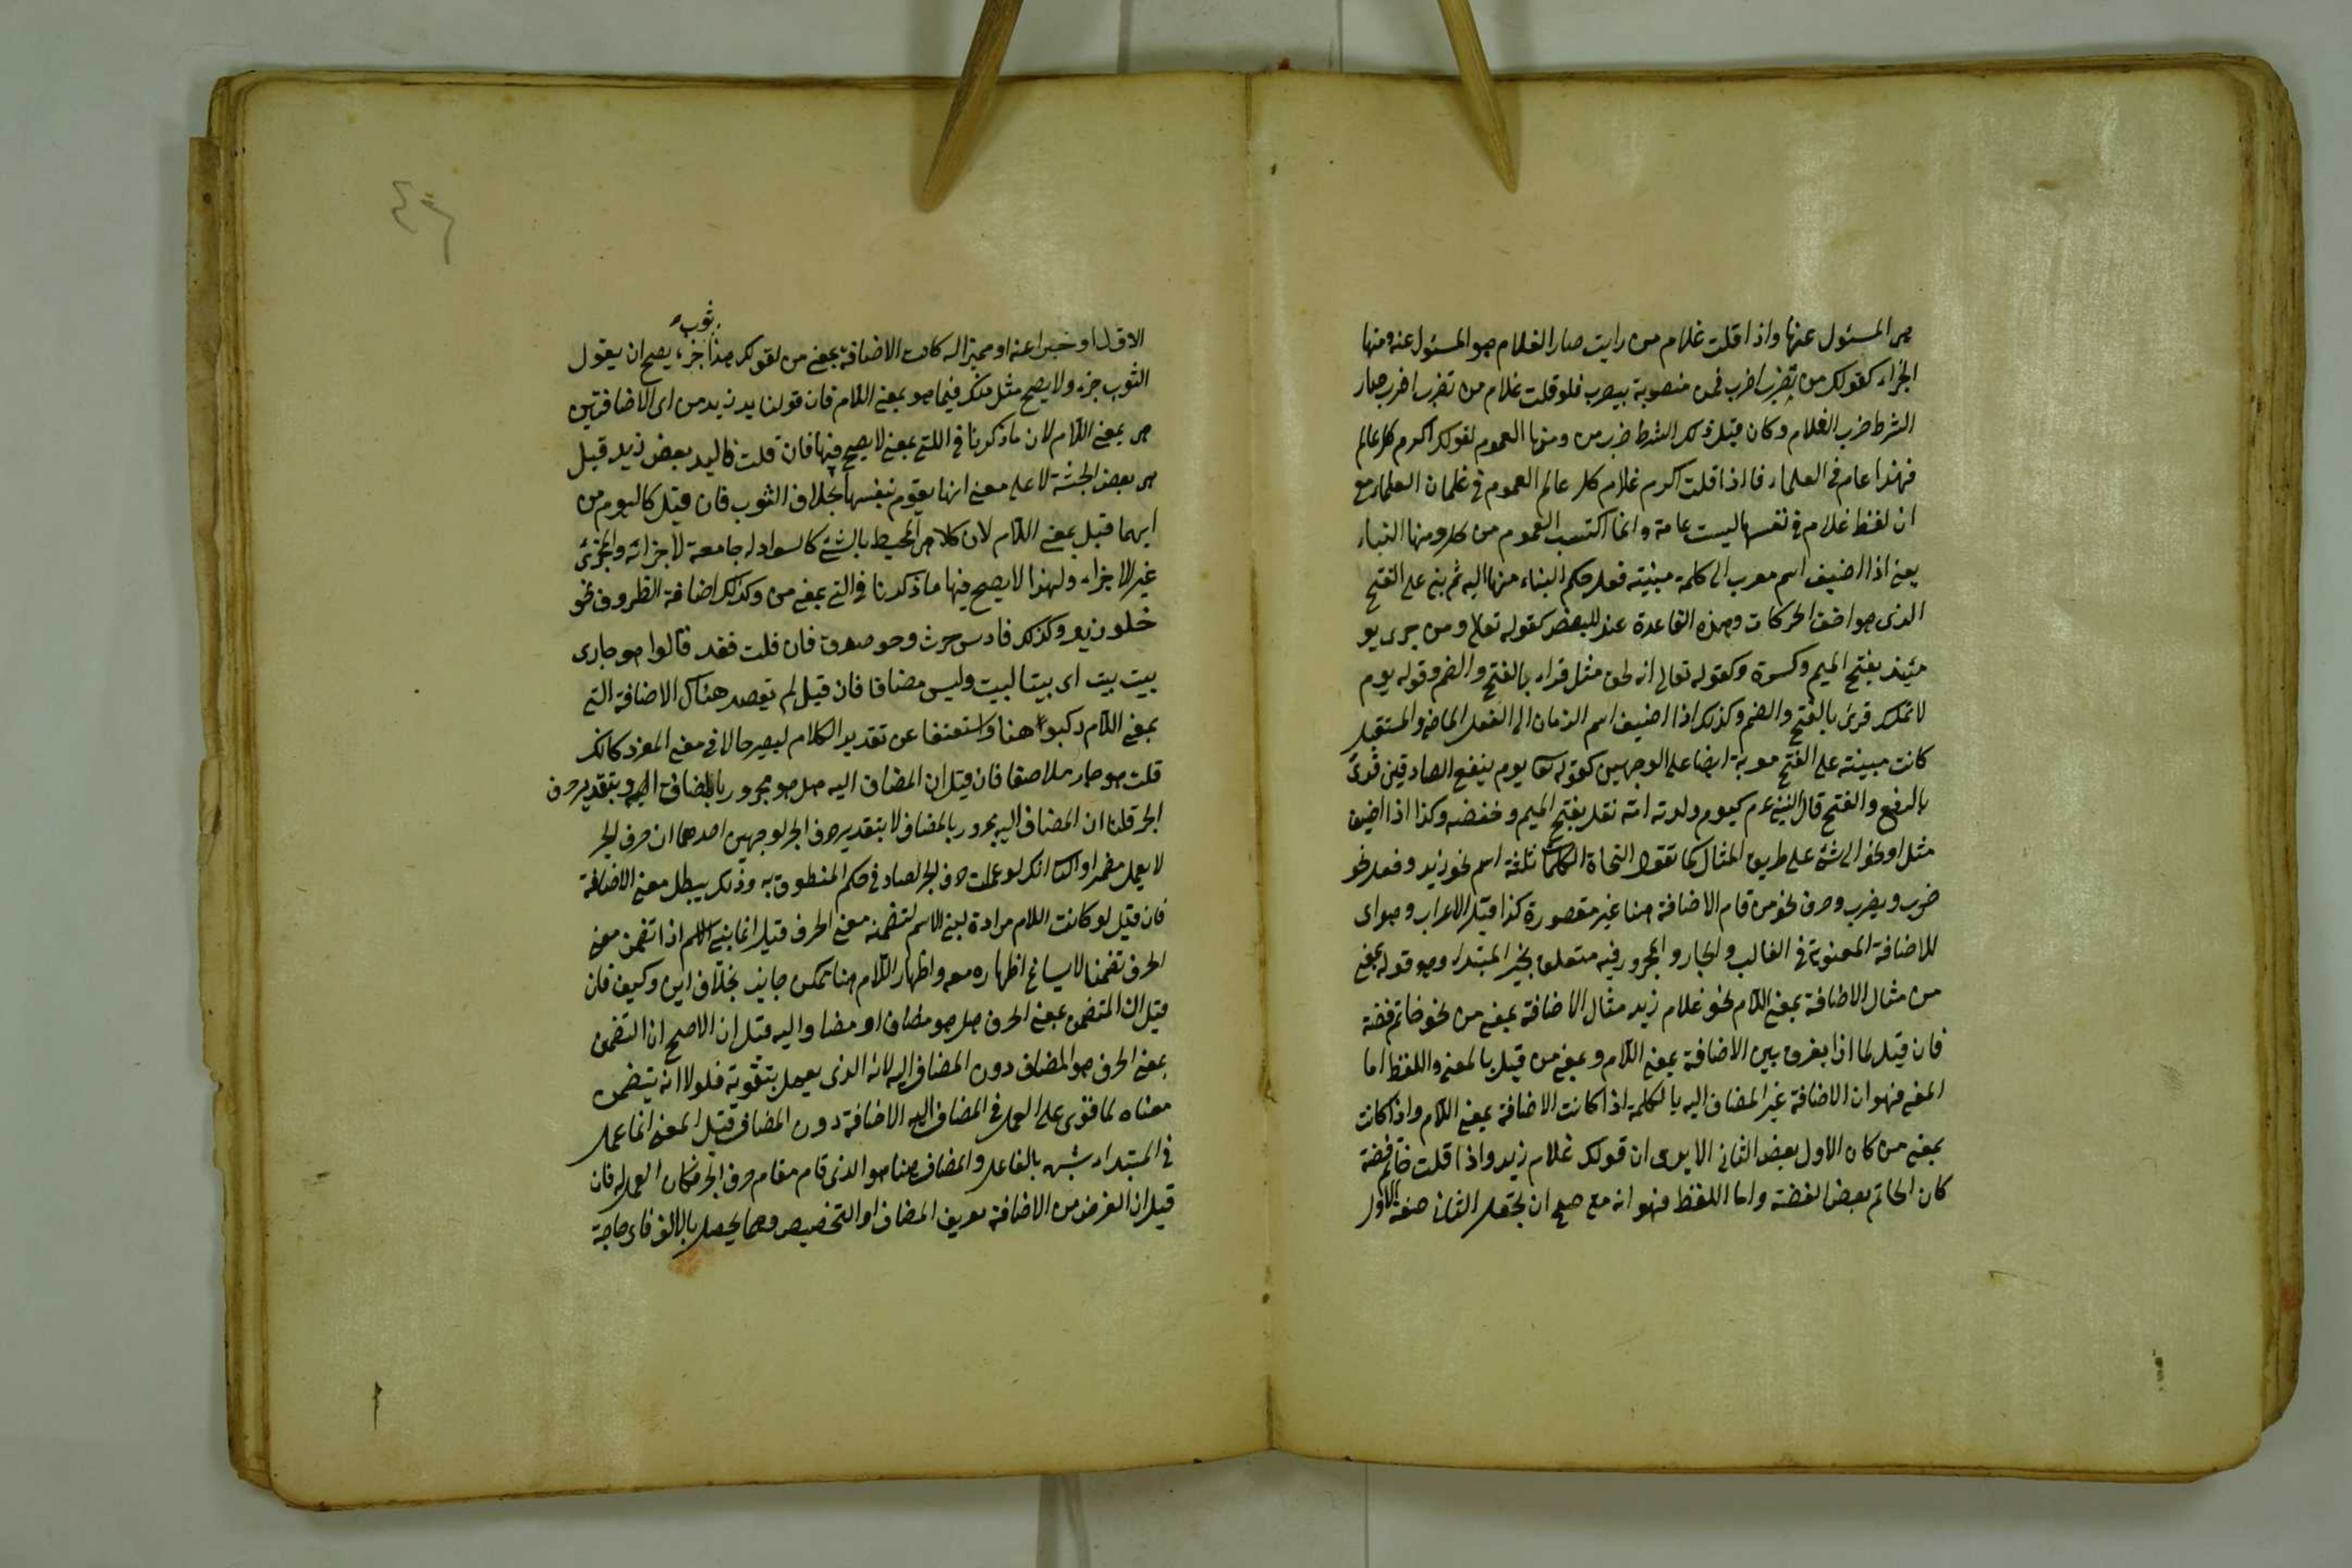 هى المسئول عنها واذا قلت غلام من رايت صار الغلام هو المسئول عنه ومنها
الجزاء كقولك من تضرب اضرب فمن منصوبة بيضرب فلو قلت غلام من تضرب اضرب صار
الشرط ضرب الغلام وكان قبل ذلك الشرط ضرب من ومنها العموم لقولك اكرم كل عالم
فهذا عام فى العلماء فاذا قلت اكرم غلام كل عالم العموم فى غلمان العلماء مع
ان لفظ غلام فى نفسها ليست عامة وانما اكتسب العموم من كل ومنها البناء
يعنى اذا اضيف اسم معرب الى كلمة مبنية فعل حكم البناء منها اليه ثم بنى على الفتح
الذى هو اخف الحركات وهذه القاعدة عند البعض كقوله تعالى ومن خزى يو
مئيذ بفتح الميم وكسرة وكقوله تعالى انه لحق مثل قراء بالفتح والضم وقوله يوم
لا تملك قرئ بالفتح والضم وكذلك اذا اضيف اسم الزمان الى الفعل الماضى والمستقبل
كانت مبينة على الفتح معربة ايضا على الوجهين كقوله تعا يوم ينفع الصادقين قرئ
بالرفع والفتح قال النبى عم كيوم ولدته امه نقل بفتح الميم وخفضه وكذا اذا اضيف
مثل او نحو الى شئ على طريق المثال كما تقول النحاة الكلمات ثلثة اسم نحو زيد وفعل نحو
ضرب ويضرب وحرف نحو من قام الاضافة هنا غير مقصورة كذا قيل الاعراب وهو اى
للاضافة المعنوية فى الغالب والجار والمجرور فيه متعلق بخبر المبتداء وهو قوله بمعنى
من مثال الاضافة بمعنى اللام نحو غلام زيد مثال الاضافة بمعنى من نحو خاتم فضة
فان قيل لما اذا يفرق بين الاضافة بمعنى اللام وبمعنى من قيل بالمعنى واللفظ اما
المعنى فهو ان الاضافة غير المضاف اليه بالكلمة اذا كانت الاضافة بمعنى اللام واذا كانت
بمعنى من كان الاول بعض الثانى الا يرى ان قولك غلام زيد واذا قلت خاتم فضة
كان الخاتم بعض الفضة واما اللفظ فهو انه مع صح ان يجعل الثانى صفة للاول
ثوب
الاول او خبرا عنه او مميزا له كانت الاضافة بمعنى من لقولك هذا خز يصح ان يقول
الثوب خز ولا يصح مثل ذلك فيما هو بمعنى اللام فان قولنا يد زيد من اى الاضافتين
هى بمعنى اللام لان ما ذكرنا فى اللتى بمعنى لا يصح فيها فان قلت فاليد بعض زيد قيل
هى بعض الجثة لا على معنى انها يقوم بنفسها بخلاف الثوب فان قيل كاليوم من
ايهما قيل بمعنى اللام لان كلا هى المحيط بالشئ كالسواد له جامعة لاجزائه والجزئ
غير الاجزاء ولهذا لا يصح فيها ما ذكرنا فى التى بمعنى من وكذلك اضافة الظروف نحو
خلو زيد وكذلك فادس حرث وحو صدق فان قلت فقد قالوا هو جارى
بيت بيت اى بيتا لبيت وليس مضافا فان قيل لم تقصد هناك الاضافة التى
بمعنى اللام ركبوا هنا واستعنفا عن تقدير الكلام ليصير حالا فى معنى المفرد كانك
قلت هو صار ملاصقا فان قيل ان المضاف اليه هل هو مجرور بالمضاف اليه او بتقدير حرف
الجر قلنا ان المضاف اليه مجرور بالمضاف لا بتقدير حرف الجر لوجهين احدهما ان حرف الجر
لا يعمل مضمرا والثانى انك لو عملت حرف الجر لصار فى حكم المنطوق به وذلك يبطل معنى الاضافة
فان قيل لو كانت اللام مرادة لبنى الاسم لتضمنه معنى الحرف قيل انما يبنى الاسم اذا تضمن معنى
الحرف تضمنا لا يساغ اظهاره معه واظهار اللام هنا تمكن جايز بخلاف اين وكيف فان
قيل ان المتضمن بمعنى الحرف هل هو مضاف او مضاو اليه قيل ان الاصح ان التضمن
بمعنى الحرف هو المضاف دون المضاف اليه لانه الذى يعمل بتقوية فلولا انه يتضمن
معناه لما قوى على العمل فى المضاف اليه الاضافة دون المضاف قيل المعنى انما عمل
فى المبتداء بشبه بالفاعل والمضاف هنا هو الذى قام مقام حرف الجر فكان العمل له فان
قيل ان الغرض من الاضافة تعريف المضاف او التخصيص وهما يحصل بالالف فاى حاجة